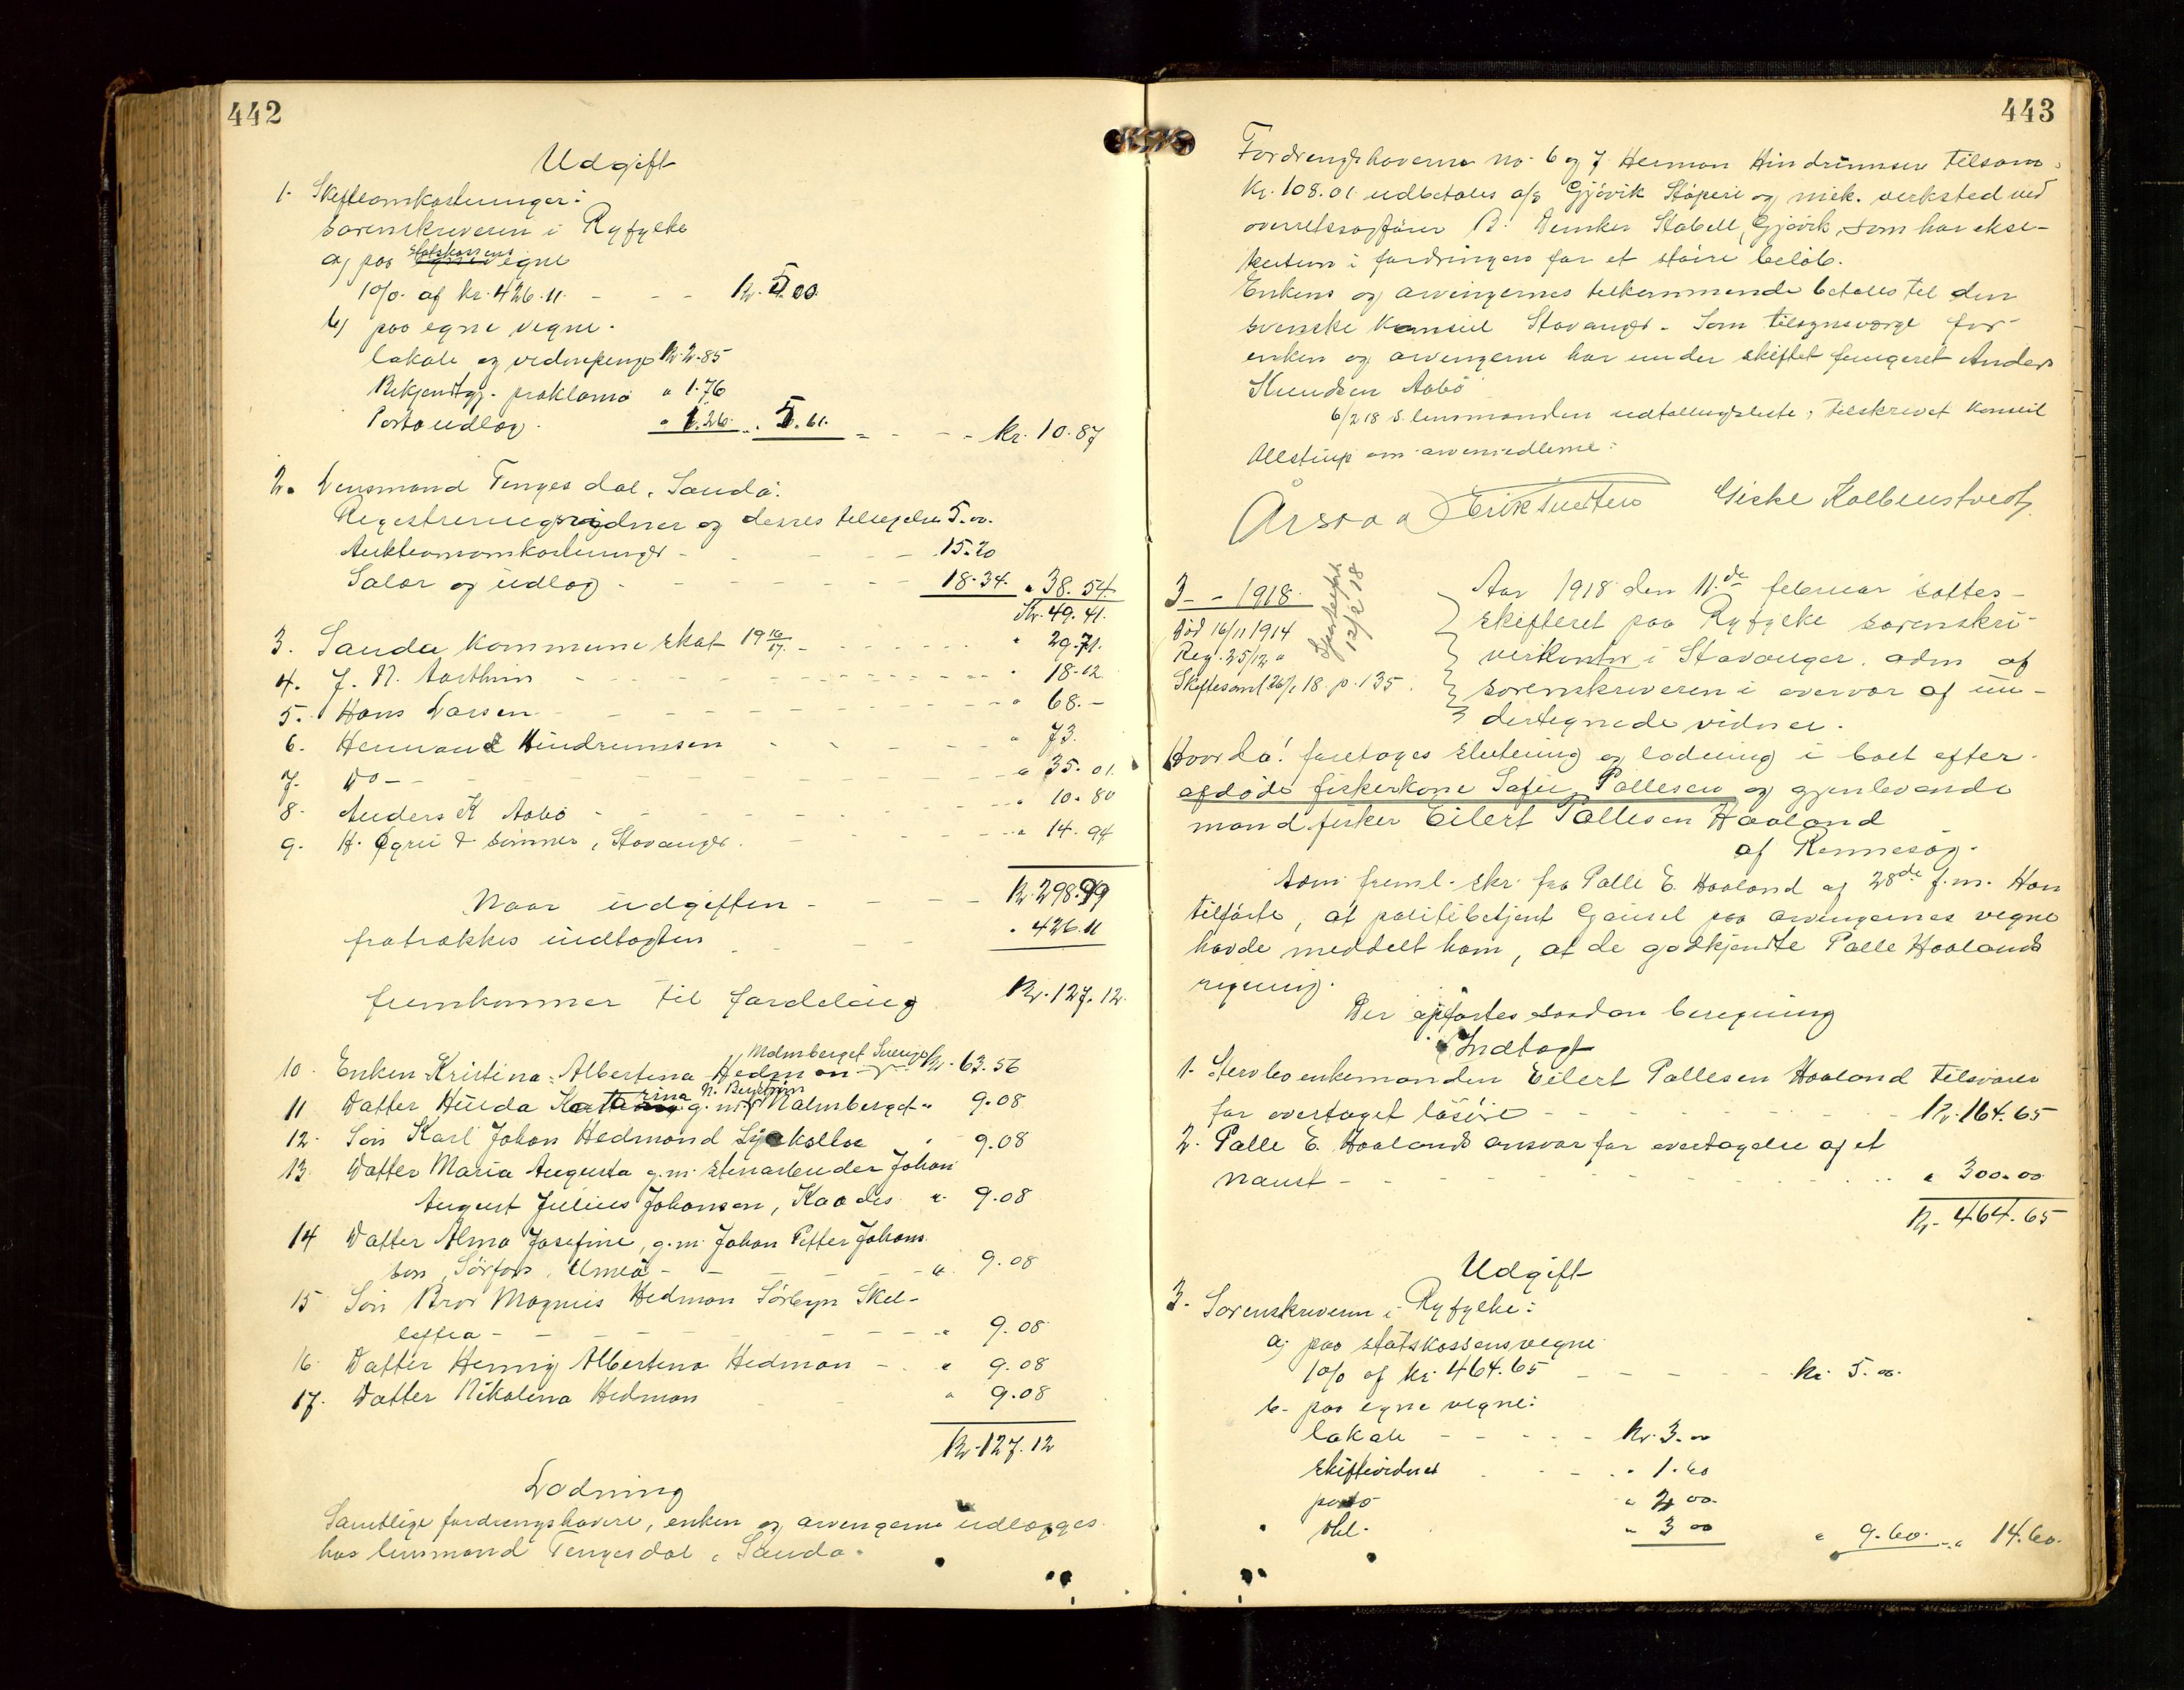 442
Udgift
1. Skifteomkostninger:
sorenskriveren i Ryfylke
a) paa statskassens vegne
1 0/0 af kr. 426.11 - - - Kr. 5.00
b) paa egne vegne.
lokale og vidnepenge Kr. 2.85
Bekjendtgj. proklama " 1.76
Porto udlæg. " 1.26 " 5.61 - - - kr. 10.87
2. Lensmand Tengesdal, Sauda.
Registreringsvidner og deres tilsigelse 5.00
Auktionsomkostninger - - - 15.20
Salær og udlæg - - - 18.34 " 38.54
Kr. 49.41
3. Sauda kommune skat 19 16/17 - - - " 29.71
4. J. N. Aarthun - - - " 18.12
5. Hans Larsen - - - " 68.-
6. Herman Hindrumsen - - - " 73.
7. Do - - - - " 35.01
8. Anders K Aabø - - - " 10.80
9. H. Øgrei & sønner, Stavanger. - - - " 14.94
Kr. 298.99
Naar udgiften - - -
fratrækkes indtægten - - - " 426.11
fremkommer til fordeling Kr. 127.12
10. Enken Kristina Albertina Hedman Malmberget Sverige Kr. 63.56
11 Datter Hulda Katarina g. m. N. Bergström Malmberget " 9.08
12. Søn Karl Johan Hedmond " 9.08
13. Datter Maria Augusta g. m. stenarbeider Johan
August Julius Johansen, " 9.08
14 Datter Alma Josefine, g. m. Johan Petter Johans
son, Sörfors, Umeå - - - " 9.08
15 Søn Bror Magnus Hedman Sörbyn Skel-
leftea - - - " 9.08
16. Datter Henny Albertina Hedman - " 9.08
17. Datter Nikolina Hedman " 9.08
Kr. 127.12
Lodning
Samtlige fordringshavere, enken og arvingerne udlægges
hos lensmand Tengesdal, Sauda.
443
Fordringshaverne no. 6 og 7 Herman Hindrumsen tilsam.
Kr. 108.01 udbetales a/s Gjøvik Støperi og mek. verksted ved
overretssagfører B. Stabell, Gjøvik, som har ekse-
kution i fordringen for et større beløb.
Enkens og arvingernes tilkommende betales til den
svenske konsul Stavanger. Som tilsynsværge for
enken og arvingerne har under skiftet fungeret Anders
Knudsen Aabø
6/2 18 s. lensmanden udtællingsliste, tilskrevet konsul
om arvemidlerne.
Giske Kolbenstvedt
3 - - 1918
Død 16/11 1914
Reg. 25/12 "
Skiftesaml. 26/1 18. p. 135.
12/2 18
Aar 1918 den 11.de februar sattes
skifteret paa Ryfylke sorenskri-
verkontor i Stavanger, adm af
sorenskriveren i overvær af un-
dertegnede vidner.
Hvorda! foretoges slutning og lodning i boet efter
afdøde fiskerkone Pallesen og gjenlevende
mand fisker Eilert Pallesen Haaland
af Rennesøy.
Adm freml. skr. fra Palle E. Haaland af 28de f. m. Han
tilførte, at politibetjent Gausel paa arvingernes vegne
havde meddelt ham, at de godkjendte Palle Haalands
regning.
Der opførtes saadan beregning
Indtægt
1. Stervboenkemanden Eilert Pallesen Haaland tilsvarer
for overtaget løsøre - - - Kr. 164.65
2. Palle E. Haalands ansvar for overtagelse af et
naust - - - " 300.00
Kr. 464.65
Udgift
3. Sorenskriveren i Ryfylke:
a) paa statskassens vegne
1 0/0 af kr. 464.65 - - - Kr. 5.00
b. paa egne vegne:
lokale - - - Kr. 3.00
skiftevidner - - " 1.60
porto " 2.00
skl. " 3.00 " 9.60 - " 14.60